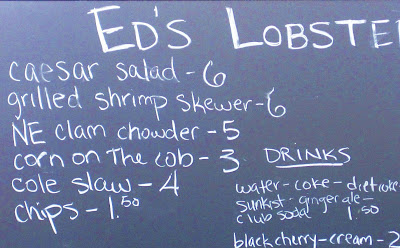 ED'S LOBSTE
caesar salad - 6
grilled shrimp skewer - 6
NE clam chowder - 5
corn on The cob - 3
cole slaw - 4
chips - 1.50
DRINKS
water - coke - diet coke
sunkist - ginger ale -
club soda 1.50
black cherry - cream - 2